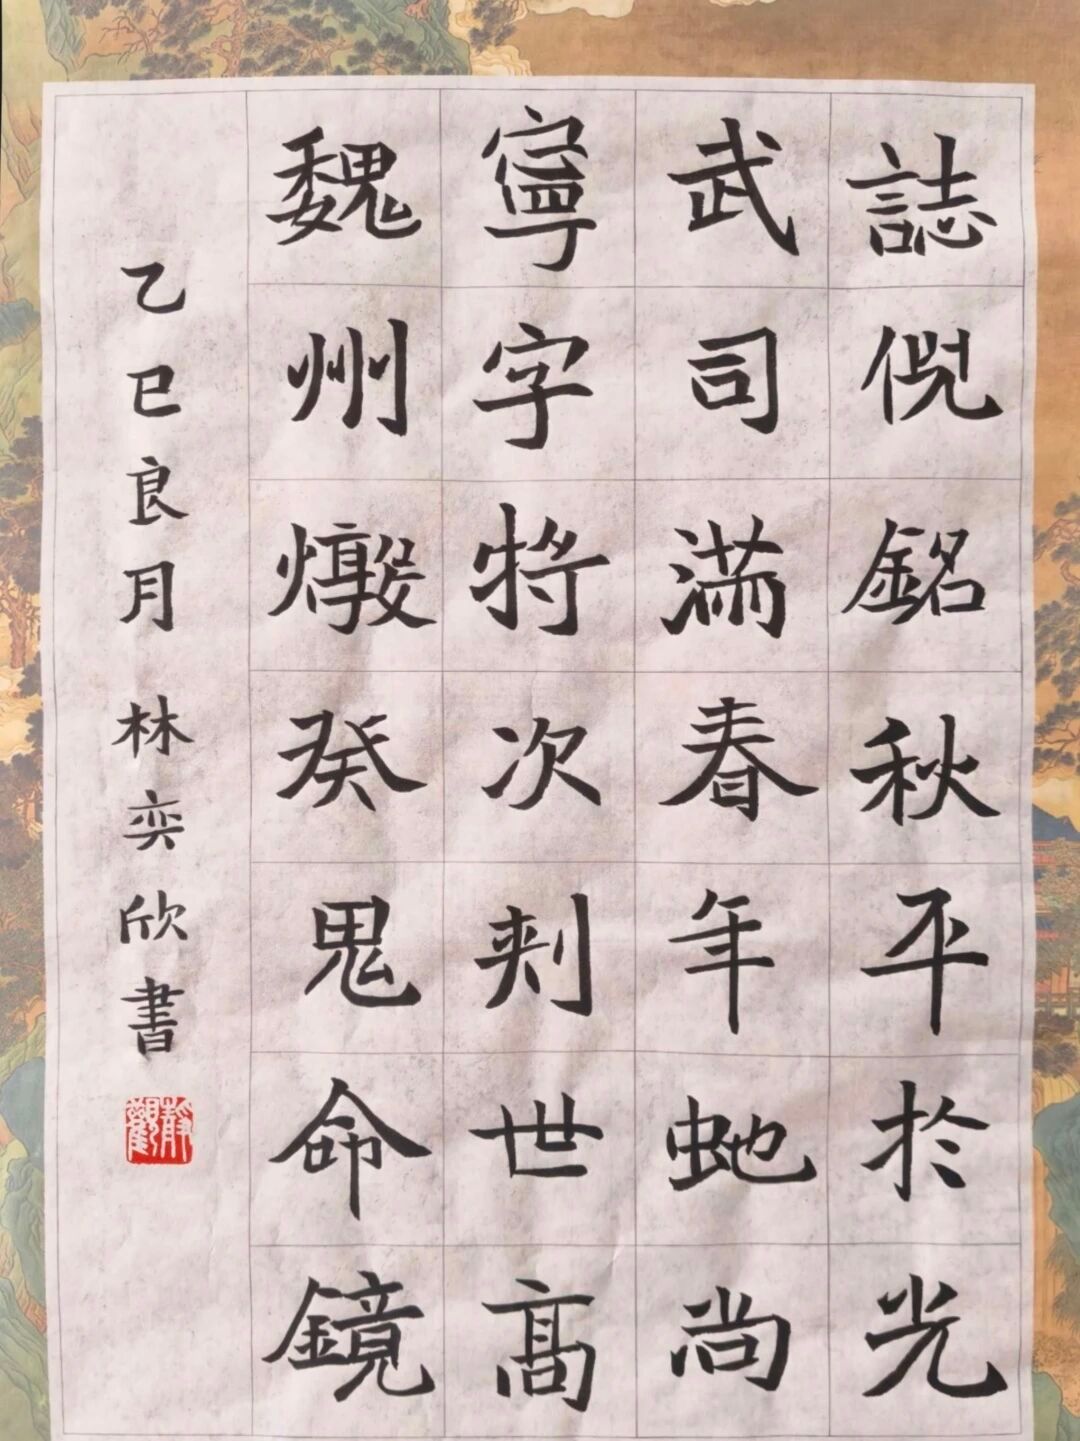 誌銘秋平於光
武司滿春年虵尚
寧字将次刾世高
魏州燉癸鬼命鏡
乙巳良月 林奕欣書
靜觀